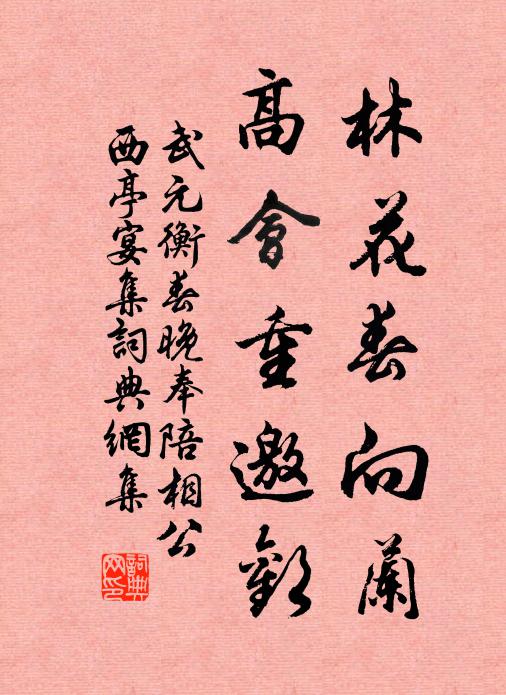 林花春向蘭
高會重邀歡
武元衡春晚奉陪相公
西亭宴集詞典網集
詞典
网印